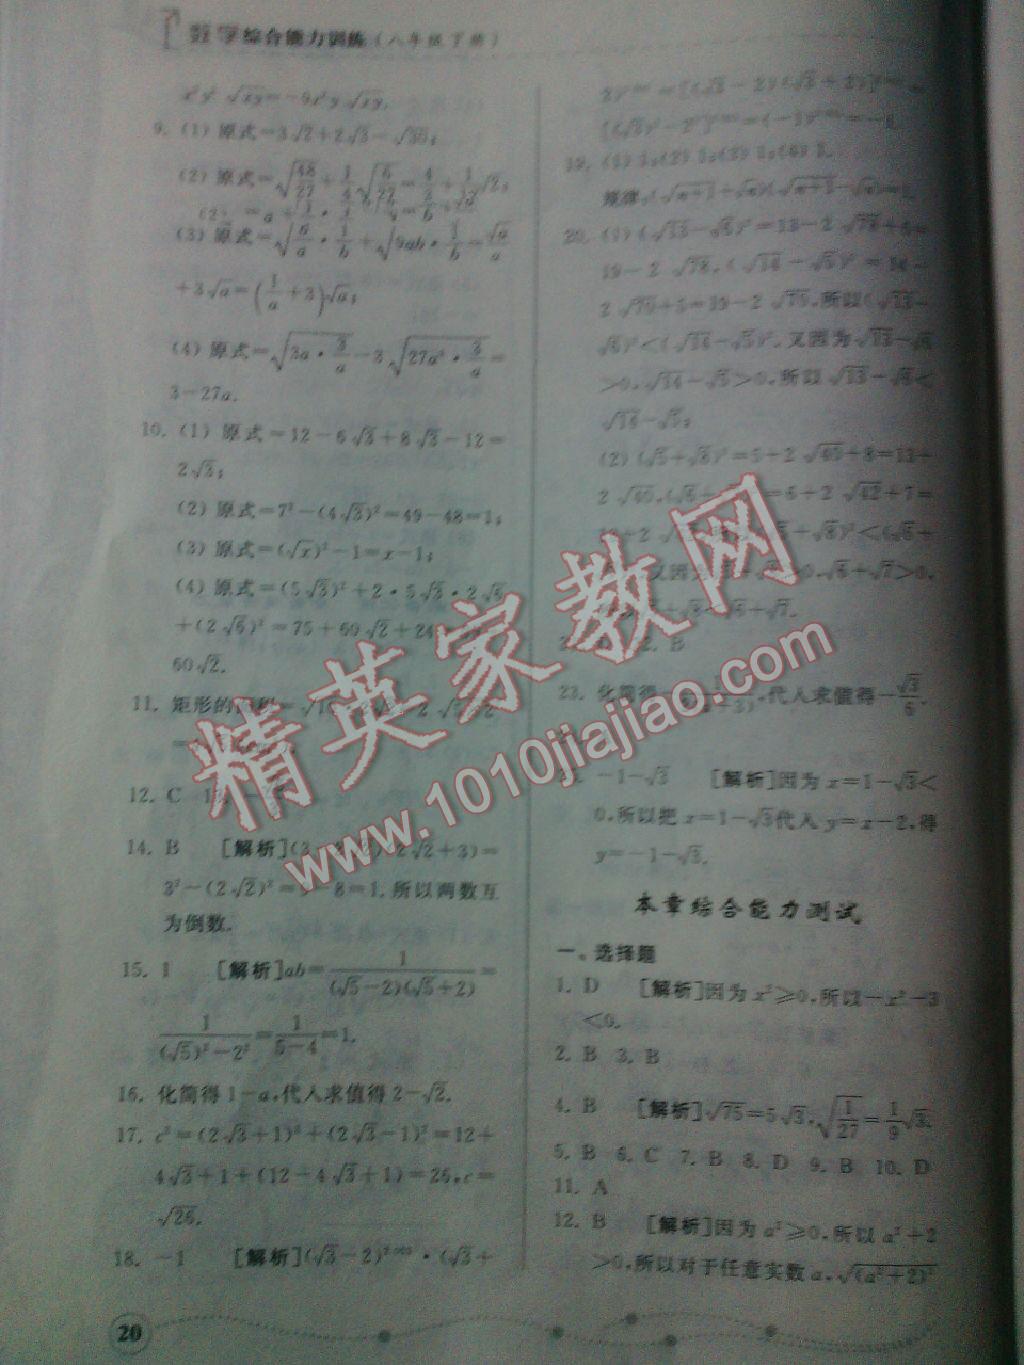 数学综合能力训练(八年级下册)
x²y² √xy=-9x²y√xy.
9. (1) 原式=3√2+2√3-√30;
(2) 原式=
(3) 原式=√(a/a · 1/b)+√(9ab · 1/b)=√a/a
+3√a=(1/a+3)√a;
(4) 原式=√(3a · 3/a)-3√(27a³ · 3/a)=
3-27a.
10. (1) 原式=12-6√3+8√3-12=
2√3;
(2) 原式=7²-(4√3)²=49-48=1;
(3) 原式=(√x)²-1=x-1;
(4) 原式=(5√3)²+2·5√3·2√6
+(2√6)²=75+60√2+24
60√2.
11. 矩形的面积=
12. C
14. B [解析](3 2√2+3)=
3²-(2√2)²=9-8=1,所以两数互
为倒数.
15. 1 [解析]ab=1/((√5-2)(√5+2))=
1/((√5)²-2²)=1/(5-4)=1.
16. 化简得1-a,代入求值得2-√2.
17. c²=(2√3+1)²+(2√3-1)²=12+
4√3+1+(12-4√3+1)=26,c=
√26.
18. -1 [解析](√3-2) ·(√3+
2) =[(√3-2)(√3+2)] =
[(√3)²-2²] =(-1) =-1.
19. (1) 1;(2) 1;(3) 1;(4) 1.
规律:(√(n+1)+√n)(√(n+1)-√n)=1.
20. (1) (√13-√6)²=13-2√78+6=
19-2√78,(√14-√5)²=14-
2√70+5=19-2√70,所以(√13-
√6)²<(√14-√5)²,又因为√13-√6
>0,√14-√5>0,所以√13-√6<
√14-√5;
(2) (√5+√8)²=5+2√40+8=13+
2√40,(√6+ =6+2√42+7=
13+2√ +√8)²<(√6+
又因为 >0,√6+√7>0,
+√8<√6+√7.
2. B
23. 化简得- ,代入求值得-√3/6.
-1-√3 [解析]因为x=1-√3<
0,所以把x=1-√3代入y=x-2,得
y=-1-√3.
本章综合能力测试
一、选择题
1. D [解析]因为x²≥0,所以-x²-3
<0.
2. B 3. B
4. B [解析]√75=5√3,√(1/27)=1/9√3.
5. B 6. C 7. B 8. D 9. B 10. D
11. A
12. B [解析]因为a²≥0,所以a²+2
>0,所以对于任意实数a,√(a²+2)²
20
精英家教网
www.1010jiajiao.com